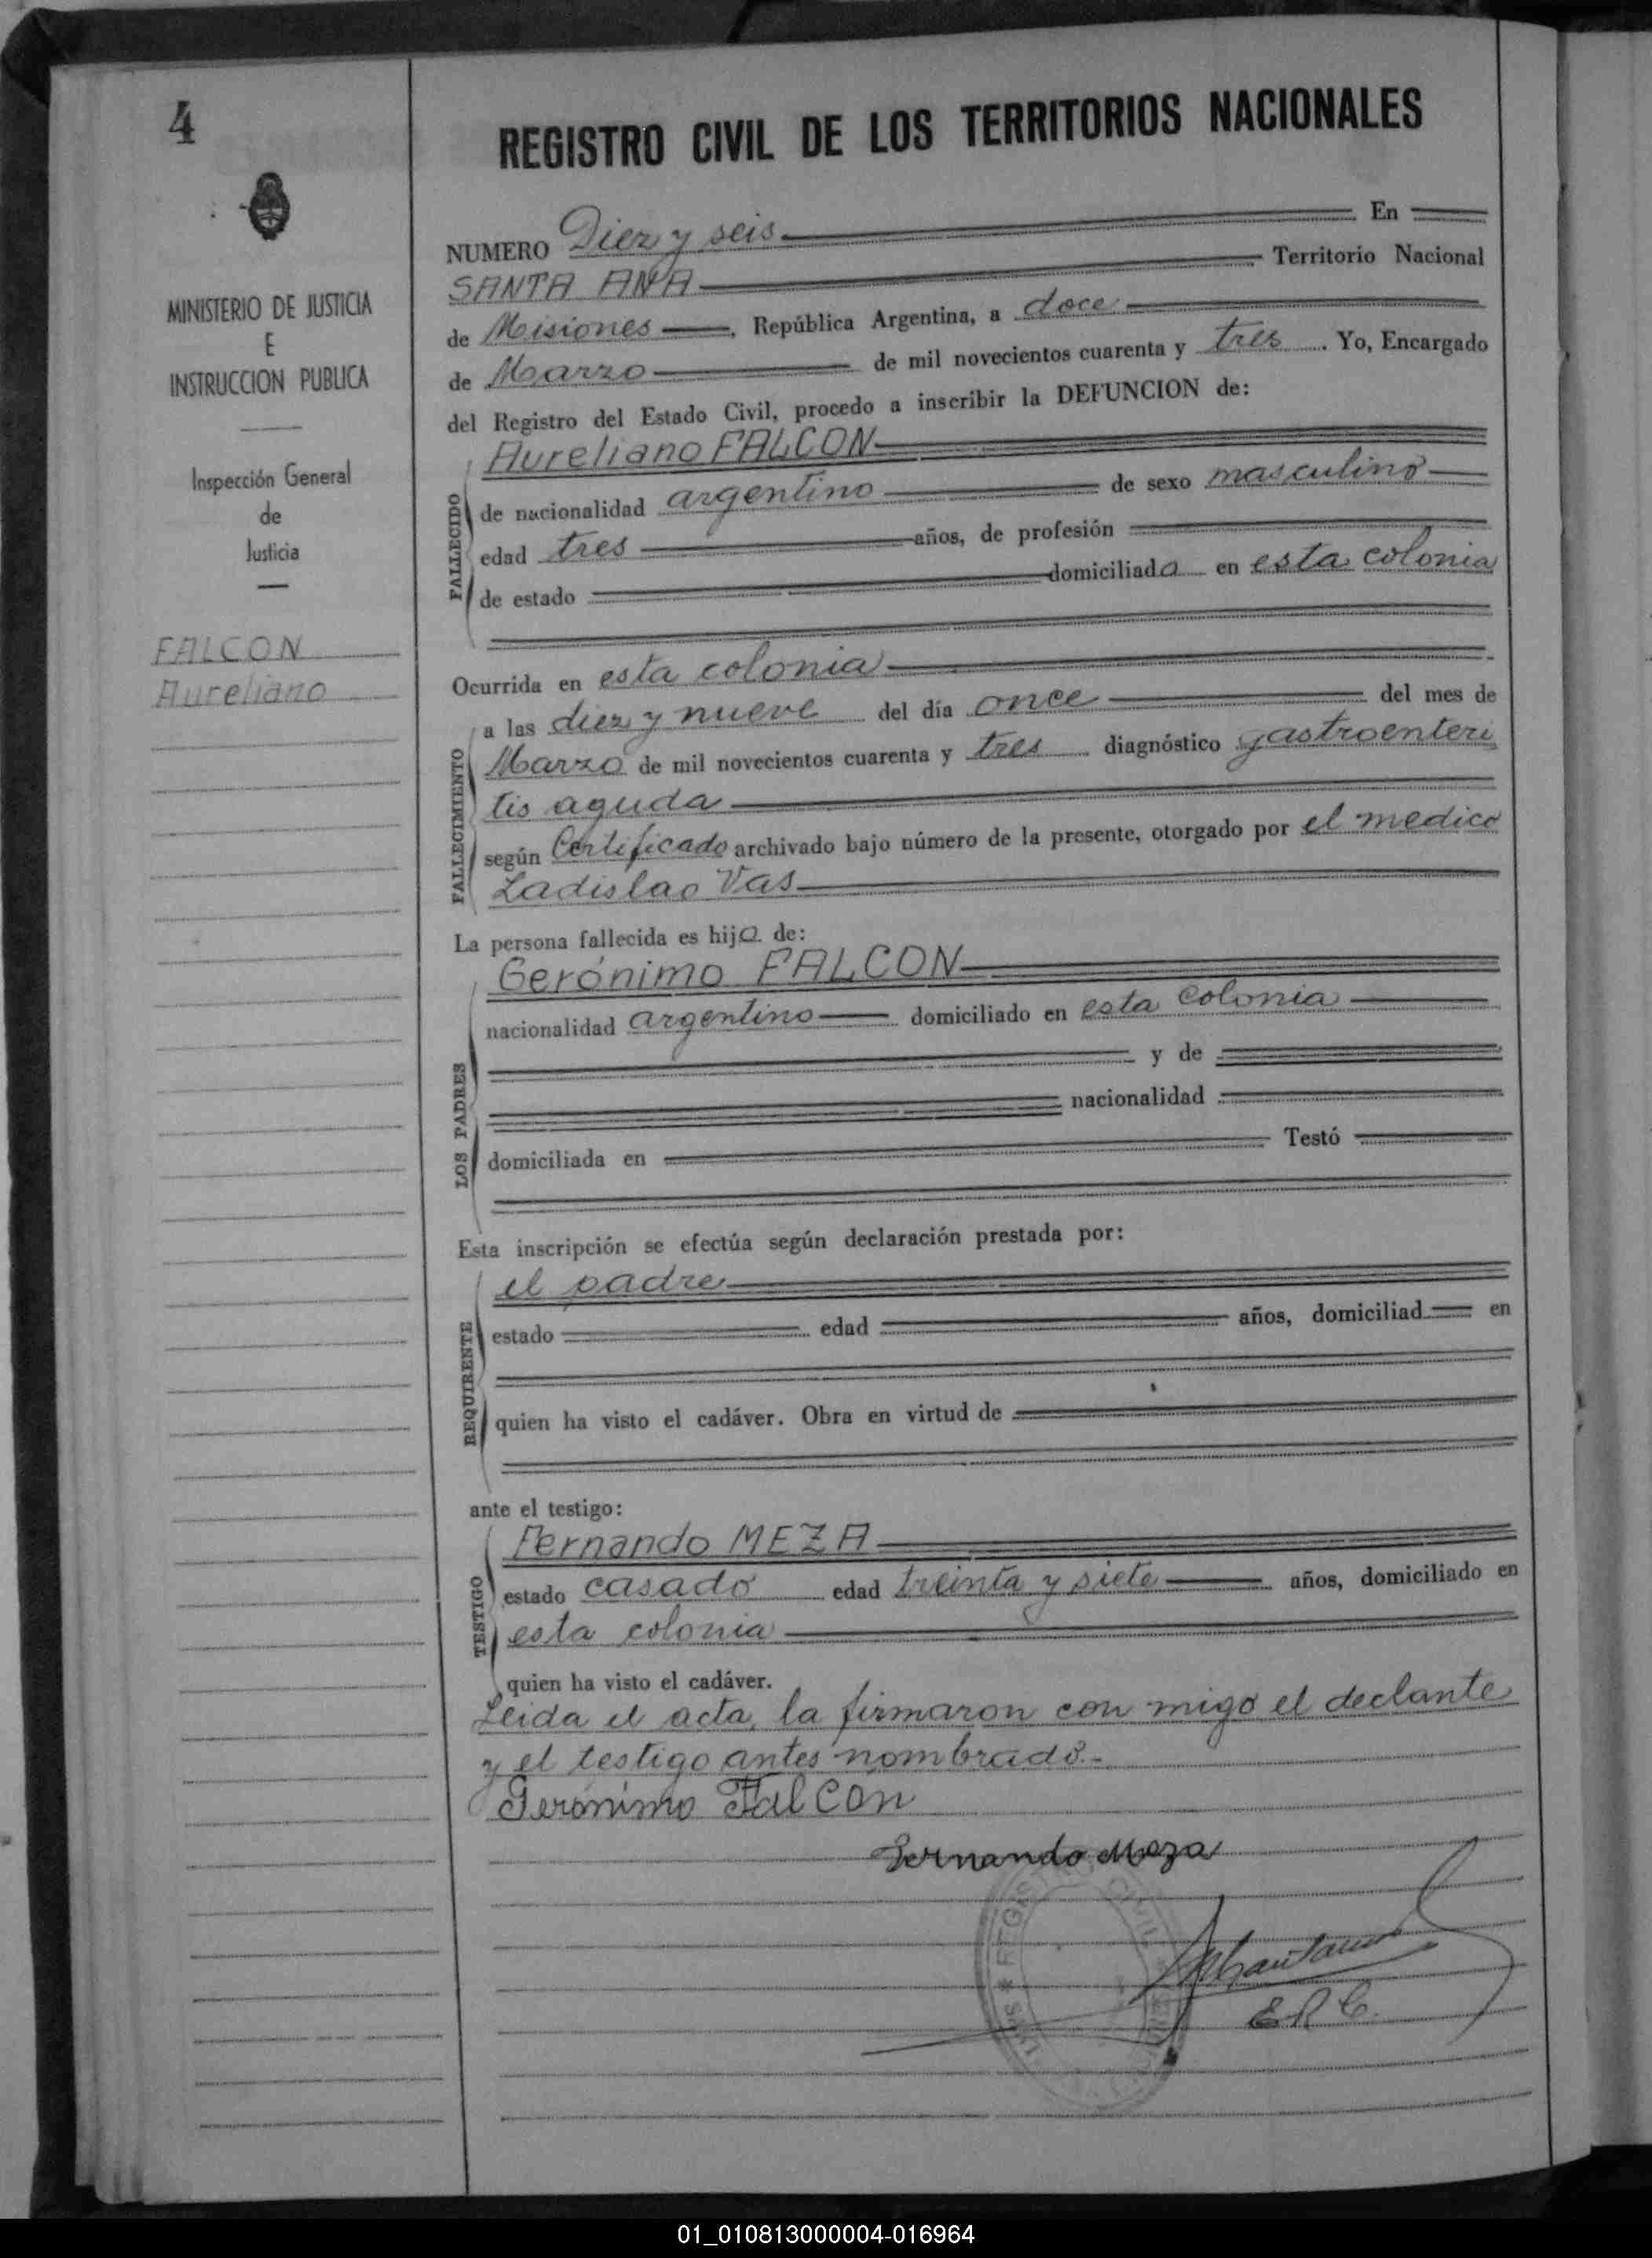 4
MINISTERIO DE JUSTICIA
E
INSTRUCCION PUBLICA
Inspección General
de
Justicia
FALCON
Aureliano
REGISTRO CIVIL DE LOS TERRITORIOS NACIONALES
NUMERO Diez y seis En
SANTA ANA Territorio Nacional
de Misiones, República Argentina, a doce
de Marzo de mil novecientos cuarenta y tres. Yo, Encargado
del Registro del Estado Civil, procedo a inscribir la DEFUNCION de:
FALLECIDO
Aureliano FALCON
de nacionalidad argentino de sexo masculino
edad tres años, de profesión
de estado domiciliado en esta colonia
Ocurrida en esta colonia
FALLECIMIENTO
a las diez y nueve del día once del mes de
Marzo de mil novecientos cuarenta y tres diagnóstico gastroenteri
tis aguda
según Certificado archivado bajo número de la presente, otorgado por el medico
Ladislao Vas
La persona fallecida es hijo de:
LOS PADRES
Gerónimo FALCON
nacionalidad argentino domiciliado en esta colonia
y de
nacionalidad
domiciliada en Testó
Esta inscripción se efectúa según declaración prestada por:
REQUIRENTE
el padre
estado edad años, domiciliad en
quien ha visto el cadáver. Obra en virtud de
ante el testigo:
TESTIGO
Fernando MEZA
estado casado edad treinta y siete años, domiciliado en
esta colonia
quien ha visto el cadáver.
Leida el acta, la firmaron con migo el declante
y el testigo antes nombrado.-
Gerónimo Falcon
Fernando Meza
E.R.C.
01_010813000004-016964